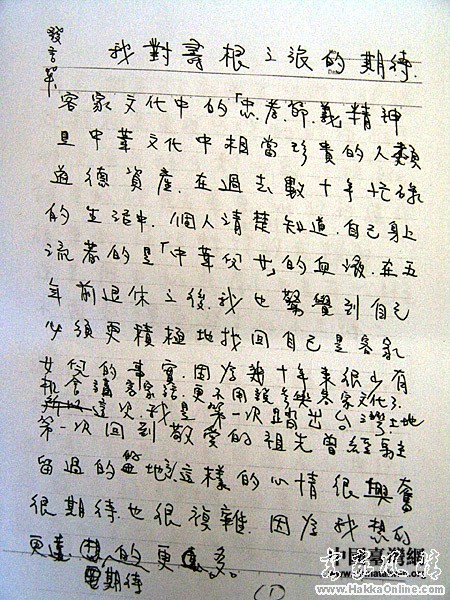 發言單
我對尋根之旅的期待.
客家文化中的「忠.孝.節.義精神
是中華文化中相當珍貴的人類
道德資產.在過去數十年忙碌
的生活中.個人清楚知道.自己身上
流著的是「中華兒女」的血液.在五
年前退休之後.我也驚覺到自己
必須更積極地找回自己是客家
女兒的事實.因為幾十年來很少有
機會講客家話.更不用說客家文化了.
這次.我是第一次踏出台灣土地
第一次回到敬愛的祖先曾經駐
留過的地.這樣的心情很興奮
很期待.也很複雜.因為我想的
更遠.的更多。
更期待
(1)
中国臺灣網
www.chinataiwan.org
客家風情
www.HakkaOnline.com